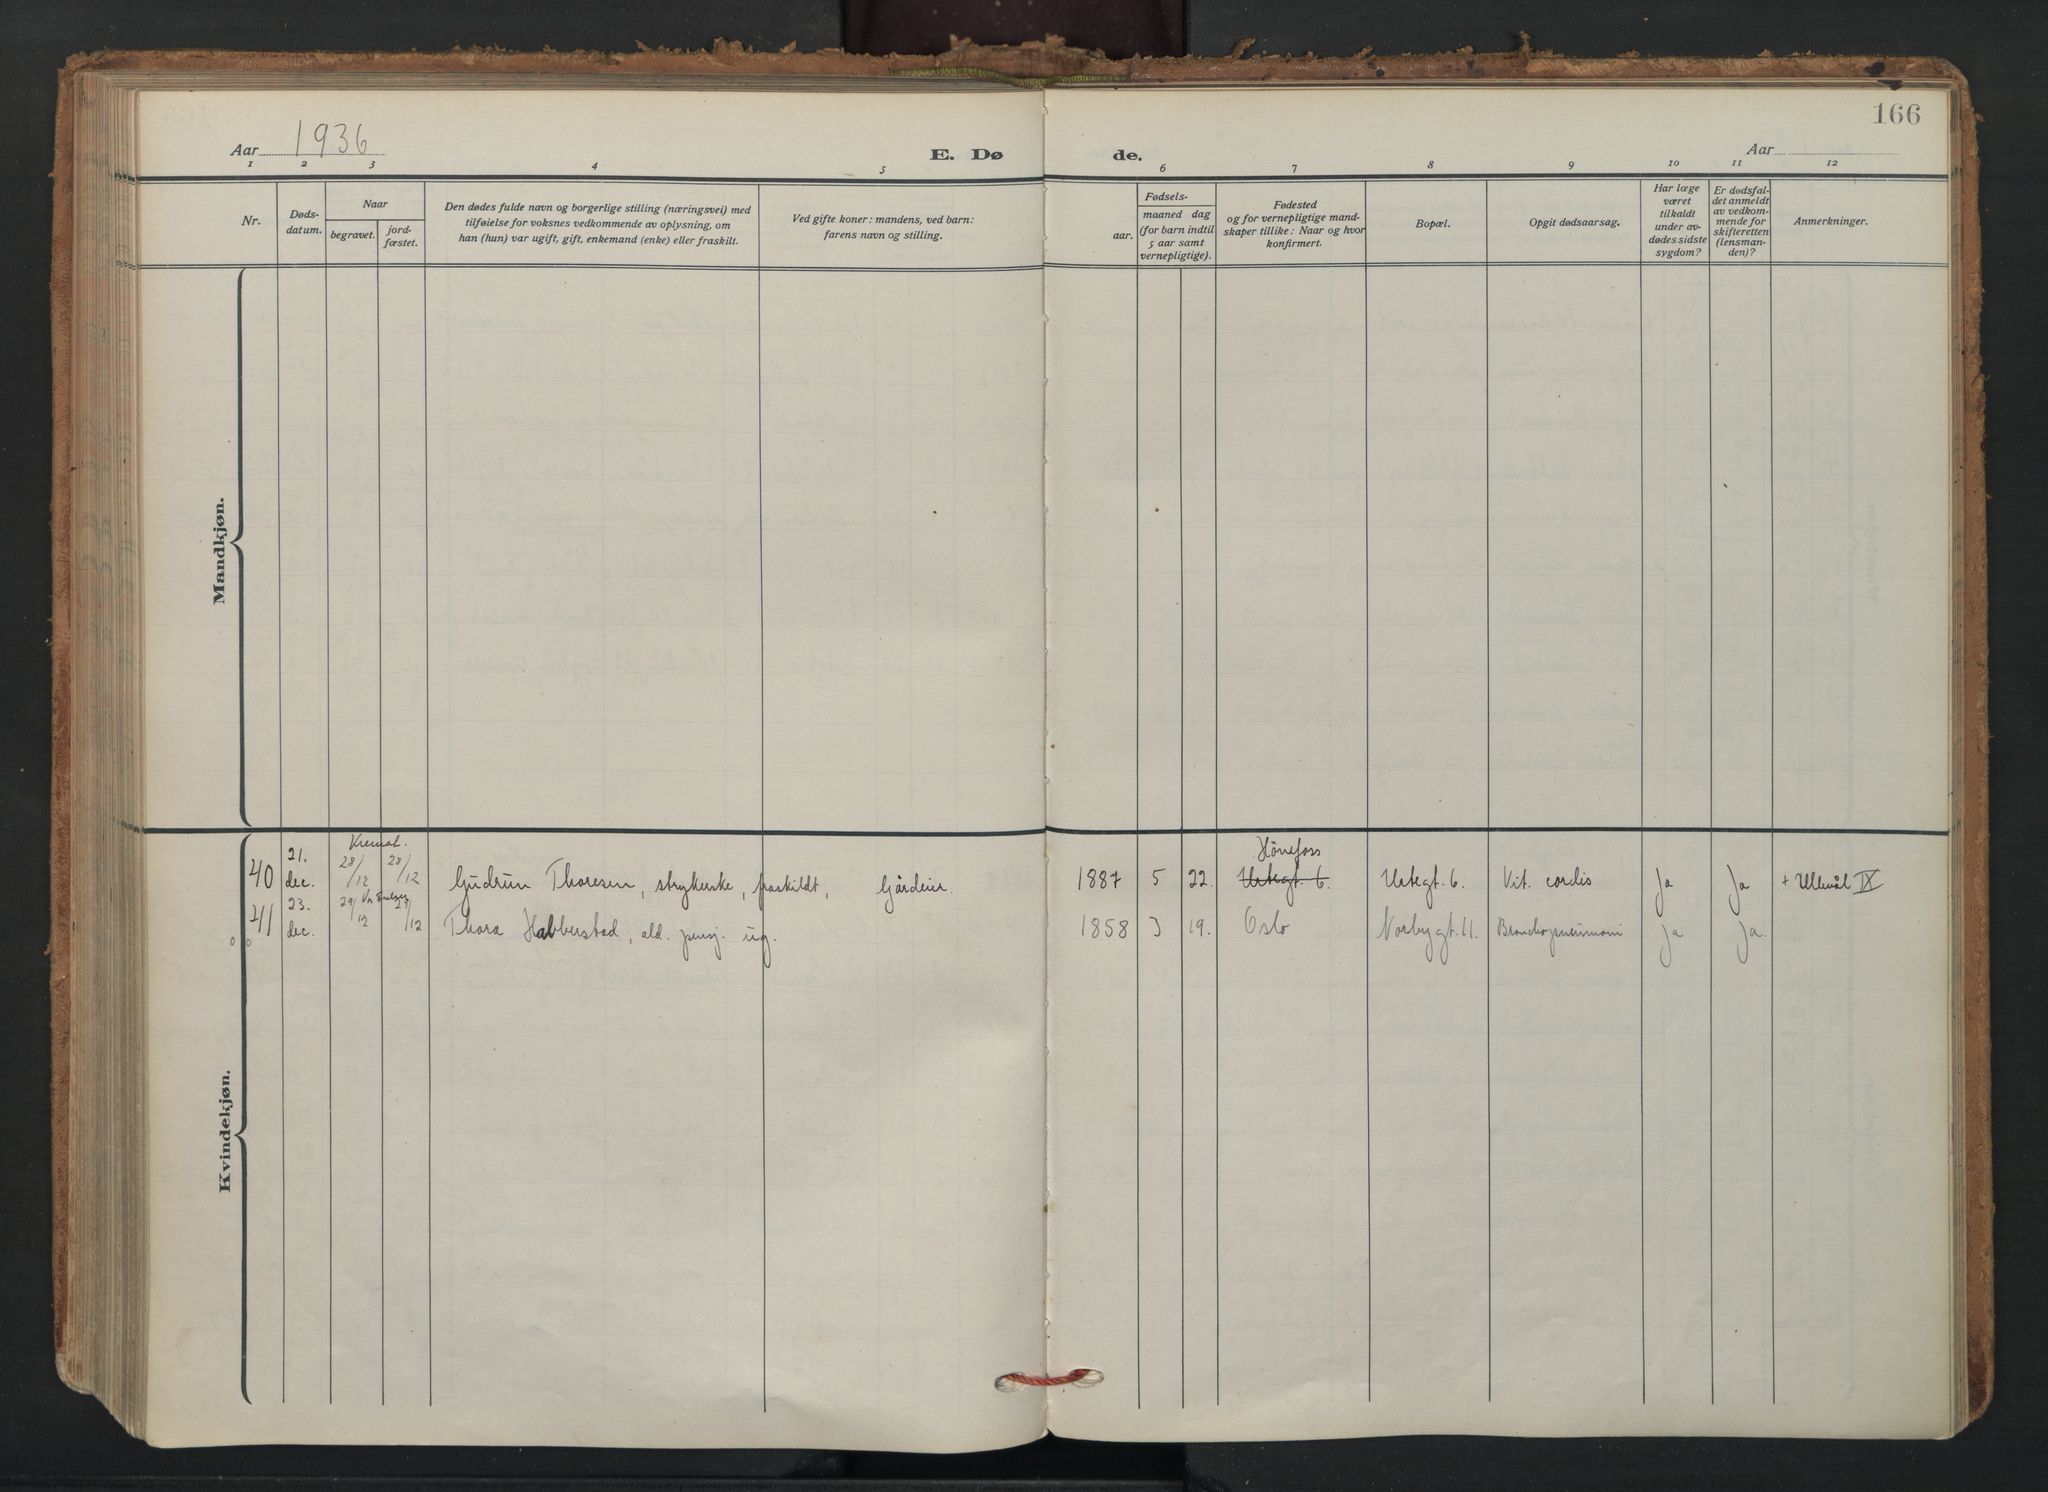 166
Aar 1936
E. Dø
de.
Aar
1 2 3 4 5 6 7 8 9 10 11 12
Nr.
Døds-
datum.
Naar
begravet.
jord-
fæstet.
Den dødes fulde navn og borgerlige stilling (næringsvei) med
tilføielse for voksnes vedkommende av oplysning, om
han (hun) var ugift, gift, enkemand (enke) eller fraskilt.
Ved gifte koner: mandens, ved barn:
farens navn og stilling.
Fødsels-
aar.
maaned dag
(for barn indtil
5 aar samt
vernepligtige).
Fødested
og for vernepligtige mand-
skaper tillike: Naar og hvor
konfirmert.
Bopæl.
Opgit dødsaarsag.
Har læge
været
tilkaldt
under av-
dødes sidste
sygdom?
Er dødsfal-
det anmeldt
av vedkom-
mende for
skifteretten
(lensman-
den)?
Anmerkninger.
Mandkjøn.
Kvindekjøn.
Kremat.
Hönefoss
40 21. dec. 28/12 28/12 Gudrun Thoresen, strykerske, fraskildt, Gårdeier. 1887 5 22. Urtegt. 6. Urtegt. 6. Vit. cordis Ja Ja + Ullevål IX
41 23. dec. 29/12 Vor Frelser 29/12 Thora Habberstad, ald. pensj. ug. 1858 3 19. Oslo Norbygt. 11. Bronchopneumoni Ja Ja.